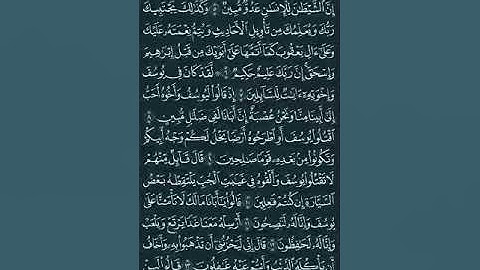 إِنَّ الشَّيْطَٰنَ لِلْإِنسَٰنِ عَدُوٌّ مُّبِينٌ ۝٥ وَكَذَٰلِكَ يَجْتَبِيكَ
رَبُّكَ وَيُعَلِّمُكَ مِن تَأْوِيلِ الْأَحَادِيثِ وَيُتِمُّ نِعْمَتَهُۥ عَلَيْكَ
وَعَلَىٰٓ ءَالِ يَعْقُوبَ كَمَآ أَتَمَّهَا عَلَىٰٓ أَبَوَيْكَ مِن قَبْلُ إِبْرَٰهِيمَ
وَإِسْحَٰقَ ۚ إِنَّ رَبَّكَ عَلِيمٌ حَكِيمٌ ۝٦ ۞ لَّقَدْ كَانَ فِى يُوسُفَ
وَإِخْوَتِهِۦٓ ءَايَٰتٌ لِّلسَّآئِلِينَ ۝٧ إِذْ قَالُوا۟ لَيُوسُفُ وَأَخُوهُ أَحَبُّ
إِلَىٰٓ أَبِينَا مِنَّا وَنَحْنُ عُصْبَةٌ إِنَّ أَبَانَا لَفِى ضَلَٰلٍ مُّبِينٍ ۝٨
اقْتُلُوا۟ يُوسُفَ أَوِ اطْرَحُوهُ أَرْضًا يَخْلُ لَكُمْ وَجْهُ أَبِيكُمْ
وَتَكُونُوا۟ مِنۢ بَعْدِهِۦ قَوْمًا صَٰلِحِينَ ۝٩ قَالَ قَآئِلٌ مِّنْهُمْ
لَا تَقْتُلُوا۟ يُوسُفَ وَأَلْقُوهُ فِى غَيَٰبَتِ الْجُبِّ يَلْتَقِطْهُ بَعْضُ
السَّيَّارَةِ إِن كُنتُمْ فَٰعِلِينَ ۝١٠ قَالُوا۟ يَٰٓأَبَانَا مَا لَكَ لَا تَأْمَ۫نَّا عَلَىٰ
يُوسُفَ وَإِنَّا لَهُۥ لَنَٰصِحُونَ ۝١١ أَرْسِلْهُ مَعَنَا غَدًا يَرْتَعْ وَيَلْعَبْ
وَإِنَّا لَهُۥ لَحَٰفِظُونَ ۝١٢ قَالَ إِنِّى لَيَحْزُنُنِىٓ أَن تَذْهَبُوا۟ بِهِۦ وَأَخَافُ
أَن يَأْكُلَهُ الذِّئْبُ وَأَنتُمْ عَنْهُ غَٰفِلُونَ ۝١٣ قَالُوا۟ لَئِنْ